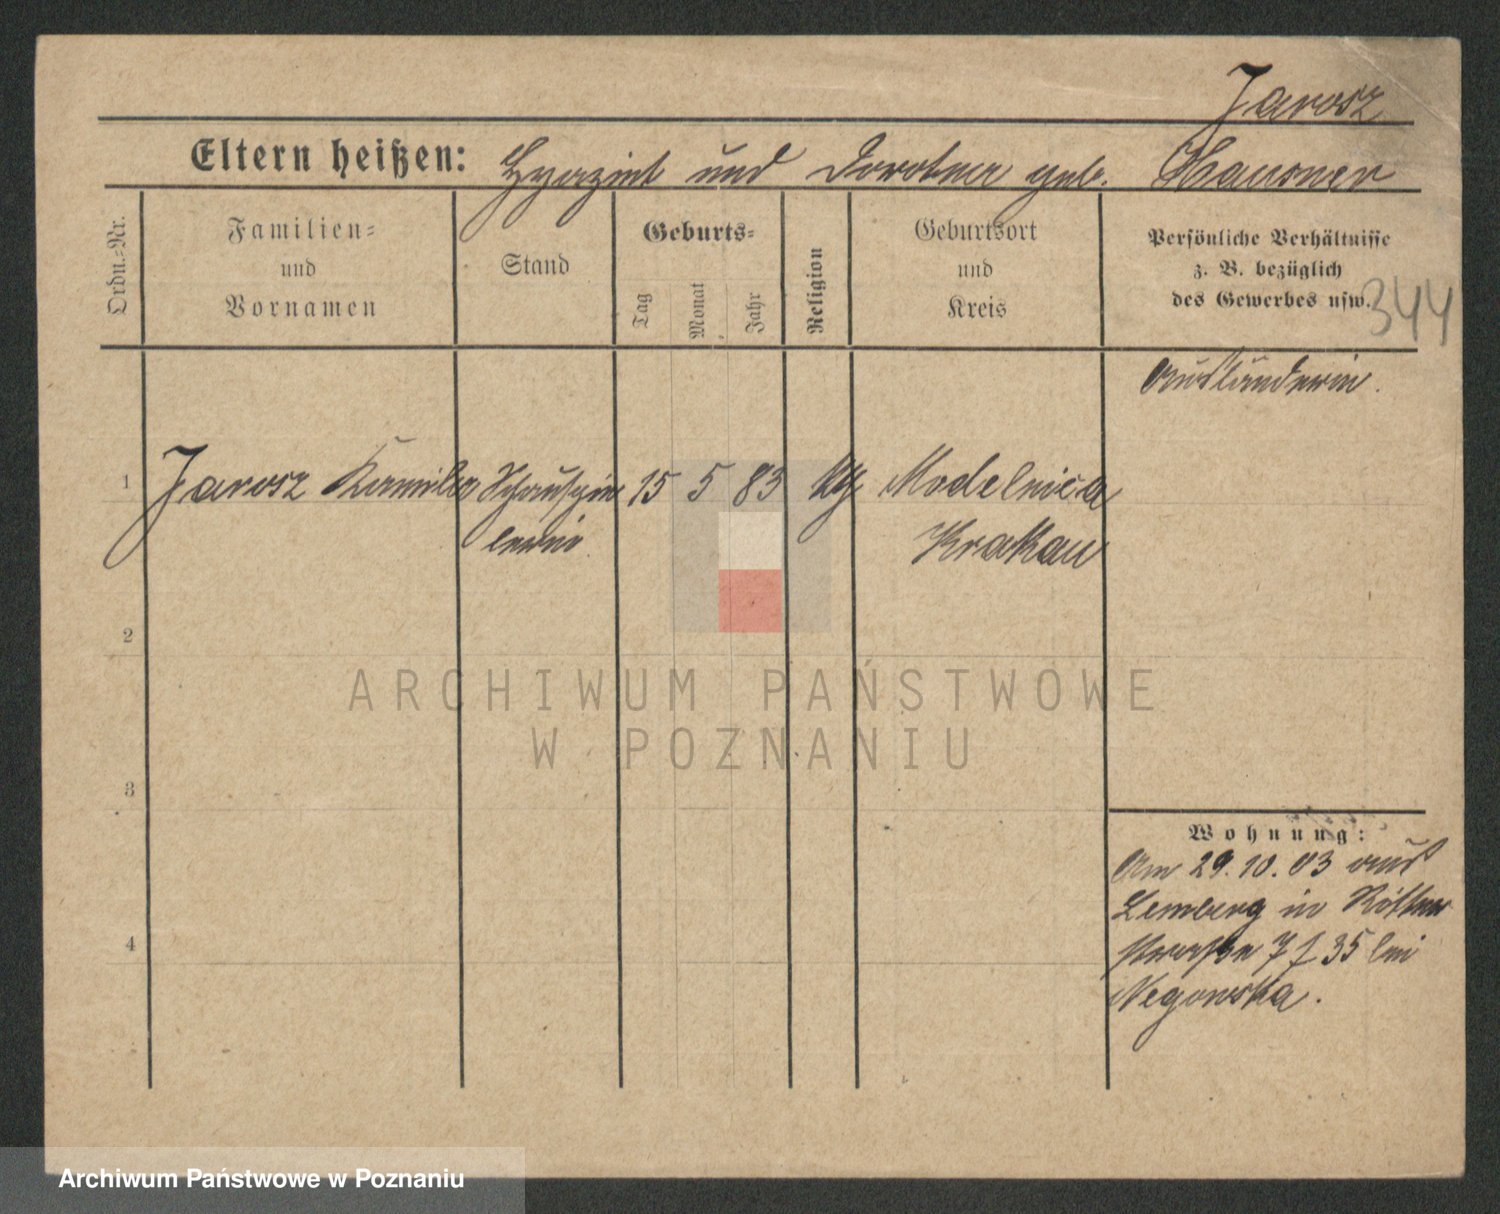 Jarosz
Eltern heißen: Hyazint und Dorothea geb. Hausner
Ordn.-Nr.
Familien-
und
Vornamen
Stand
Geburts-
Tag
Monat
Jahr
Religion
Geburtsort
und
Kreis
Persönliche Verhältnisse
z. B. bezüglich
des Gewerbes usw.
344
Ausländerin.
1 Jarosz Kamila Schauspie 15 5 83 Modelnica
lerin Krakau
2
ARCHIWUM PAŃSTWOWE
W POZNANIU
3
Wohnung:
Am 29.10.03 aus
Lemberg in Ritter
straße 7 f. 35 bei
Negowska.
4
Archiwum Państwowe w Poznaniu